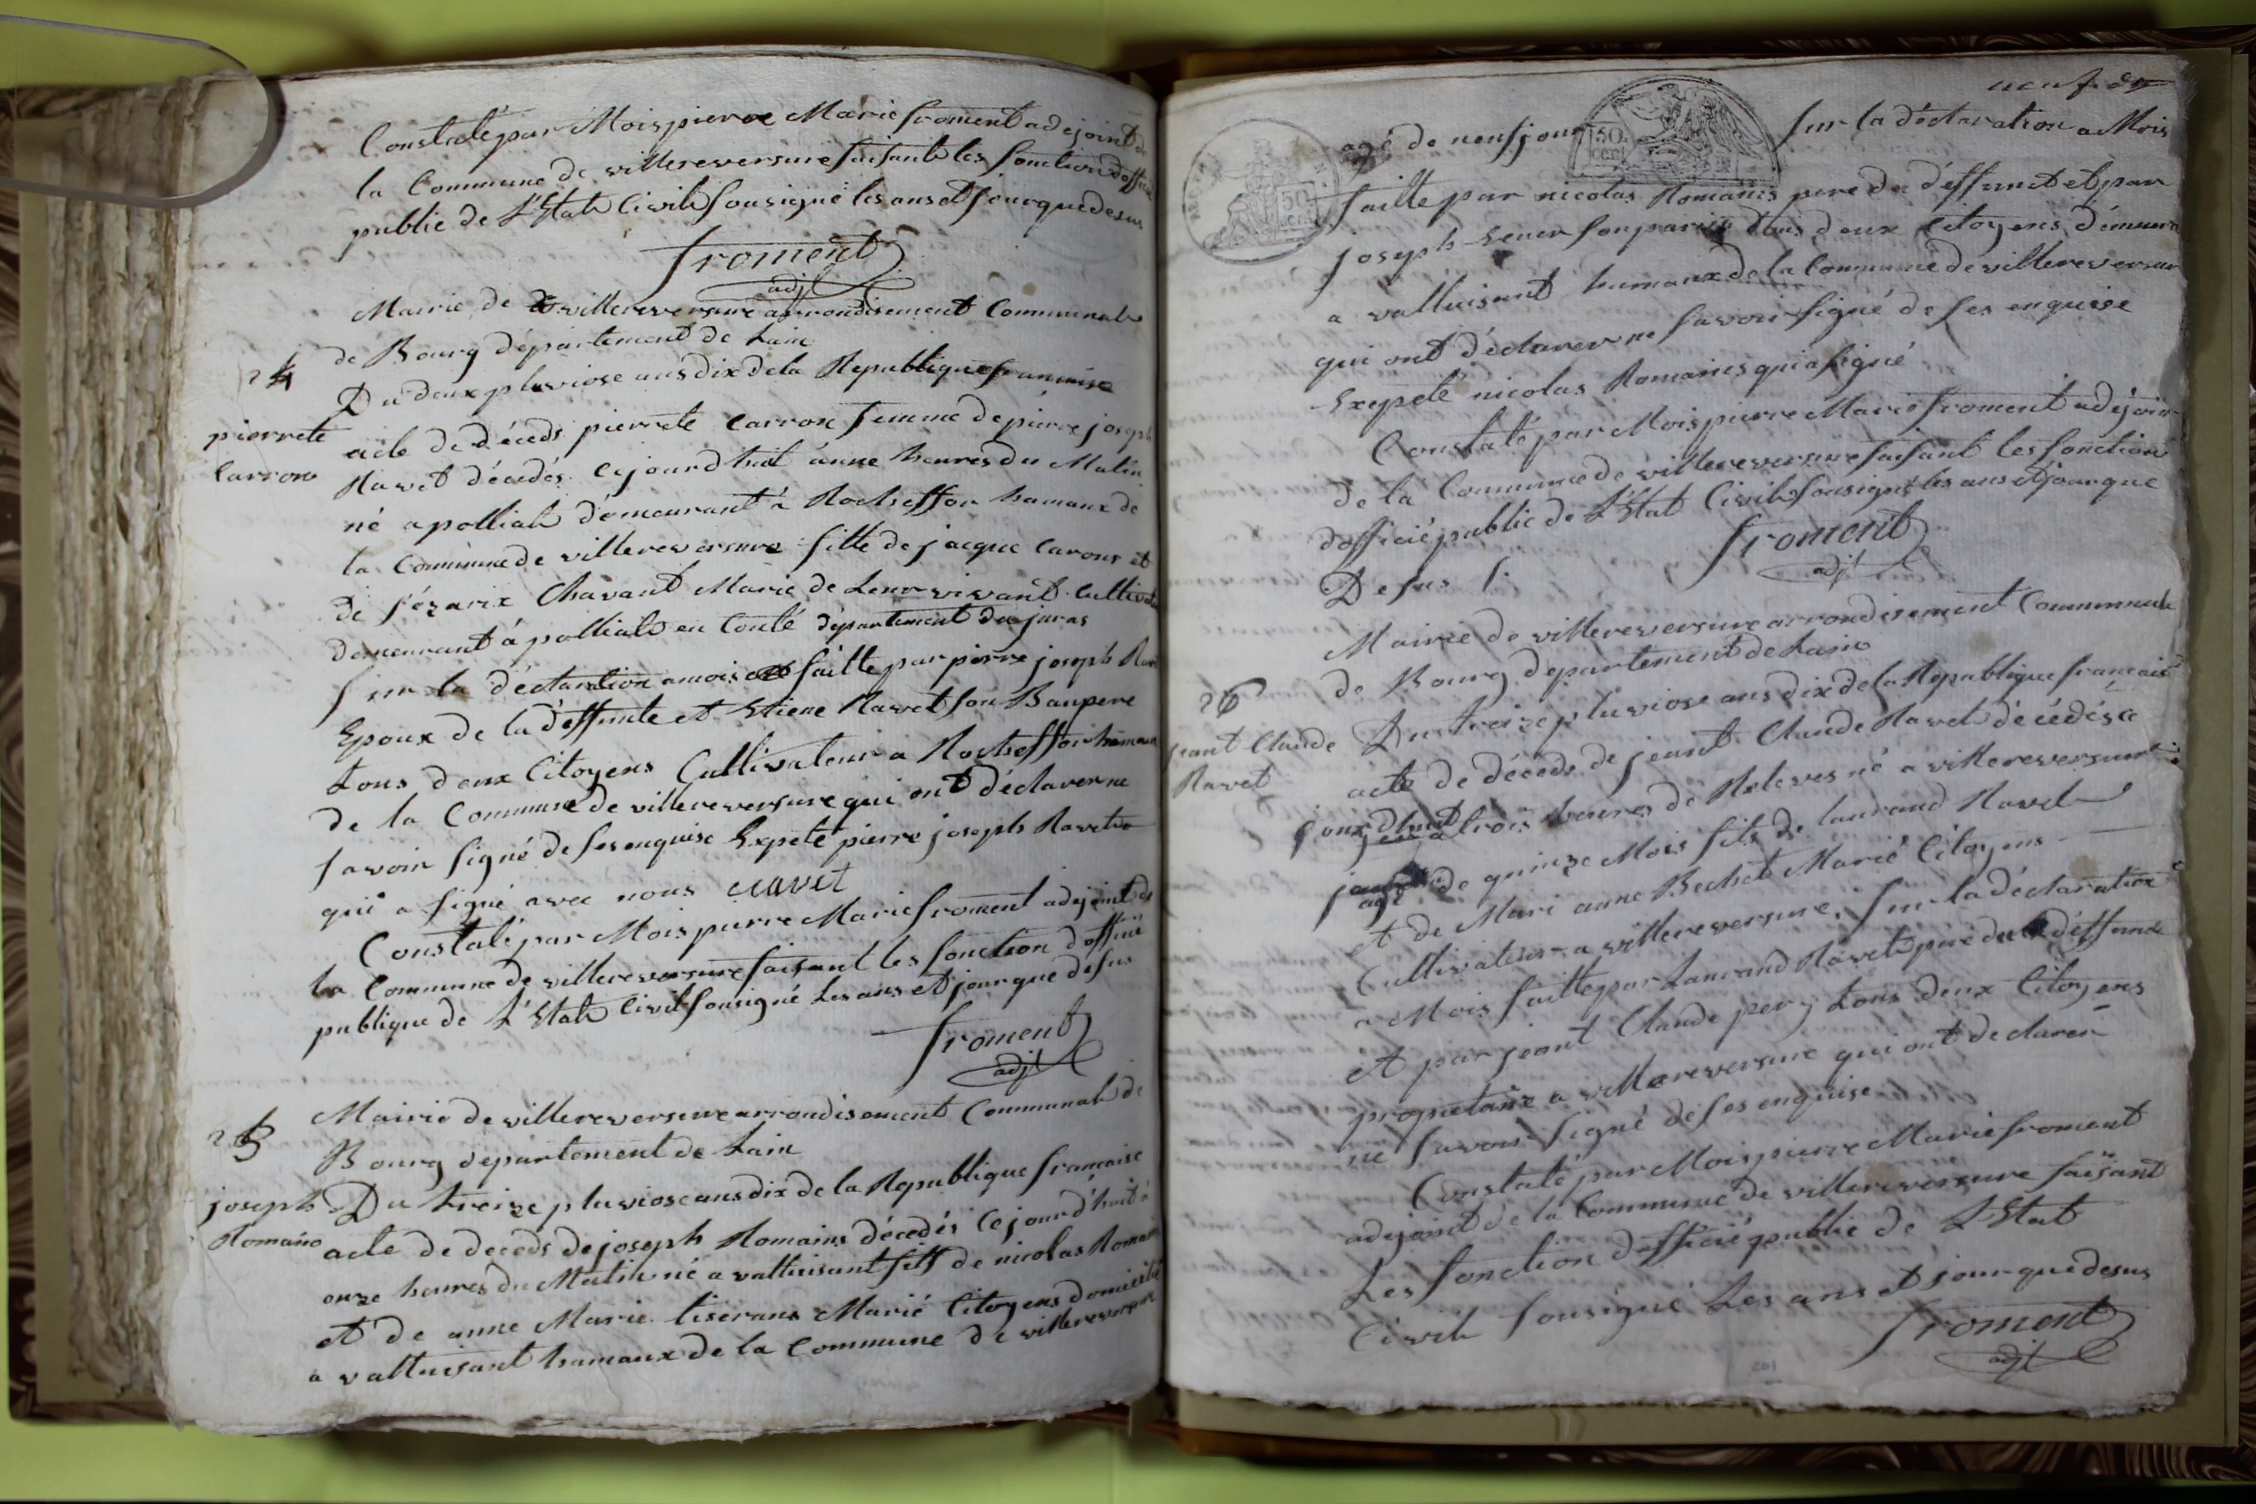 Constaté par Mois pierre Marie froment adejoint de
la Commune de villereversure faisant les fonction doffici
public de L'Etat Civile sousigné les ans et jour que desus
froment
adjt
Mairie de villereversure arrondisement Communale
de Bourg département de Lain
24
Du deux pluviose ans dix de la Republique francaise
pierrete
Carron
acte de déceds pierrete Carron femme de pierre joseph
Ravet décédés cejourdhuit ùnne heures du Matin
né a polliat démeurant à Rocheffor hamaux de
la Commune de villereversure fille de jacque Carons et
de Chavant Marié de Leur vivant Cultivate
demeurant à polliat en Conté département du juras
sur la déclaration amois faitte par pierre joseph Rav
Epoux de la déffunte et Etiene Ravet son Baupere
tous deux Citoyens Cultivateur a Rocheffor hamaux
de la Commune de villereversure qui ont déclarer ne
savoir signé de ses enquise Expeté pierre joseph Ravet
qui a signé avec nous Ravet
Constaté par Mois pierre Marie froment adejoint de
la Commune de villereversure faisant les fonction doffice
publique de L'Etat Civil sousigné Les ans et jour que desus
froment
adjt
Mairie de villereversure arrondisement Communale de
25
Bourg departement de Lain
joseph
Romain
Du treize pluviose ans dix de la Republique francaise
acte de deceds de joseph Romains décédés Cejourd'huit à
onze heures du Matin né a valluisant fils de nicolas Romans
et de anne Marie tiserans Marié Citoyens domicilié
a valluisant hamaux de la Commune de villereversure
neuf
agé de neuf jour sur la déclaration a Mois
50
cen
faitte par nicolas Romains pere du déffunct et par
joseph son tous deux Citoyens démeura
a valluisant hamaux de la Commune de villereversure
qui ont déclarer ne savoir signé de ses enquise
Exepeté nicolas Romains qui a signé
Constaté par Mois pierre Marie froment adejoin
de la Commune de villereversure faisant les fonction
dofficié public de L'Etat Civile sousigné les ans et jour que
Desus
froment
adjt
Mairie de villereversure arrondisement Communale
de Bourg departement de Lain
26
Du treize pluviose ans dix de la Republique francaise
jeant Claude
Ravet
acte de décéds de jeant Claude Ravet décédés ce
jourdhuit a trois heures de Releves né a villereversure
agé de quinze Mois fils de Laurand Ravet
et de Mari anne Bechet Marié Citoyens
Cultivateur a villereversure sur la déclaration
a Mois faitte par Laurand Ravet pere du déffunct
et par jeant Claude pery tous deux Citoyens
propietaire a villereversure qui ont declarer
ne savoir signé de ses enquise
Constaté par Mois pierre Marie froment
adejoint de la Commune de villereversure faisant
Les fonction dofficié public de L'Etat
Civile sousigné Les ans et jour que desus
froment
adjt